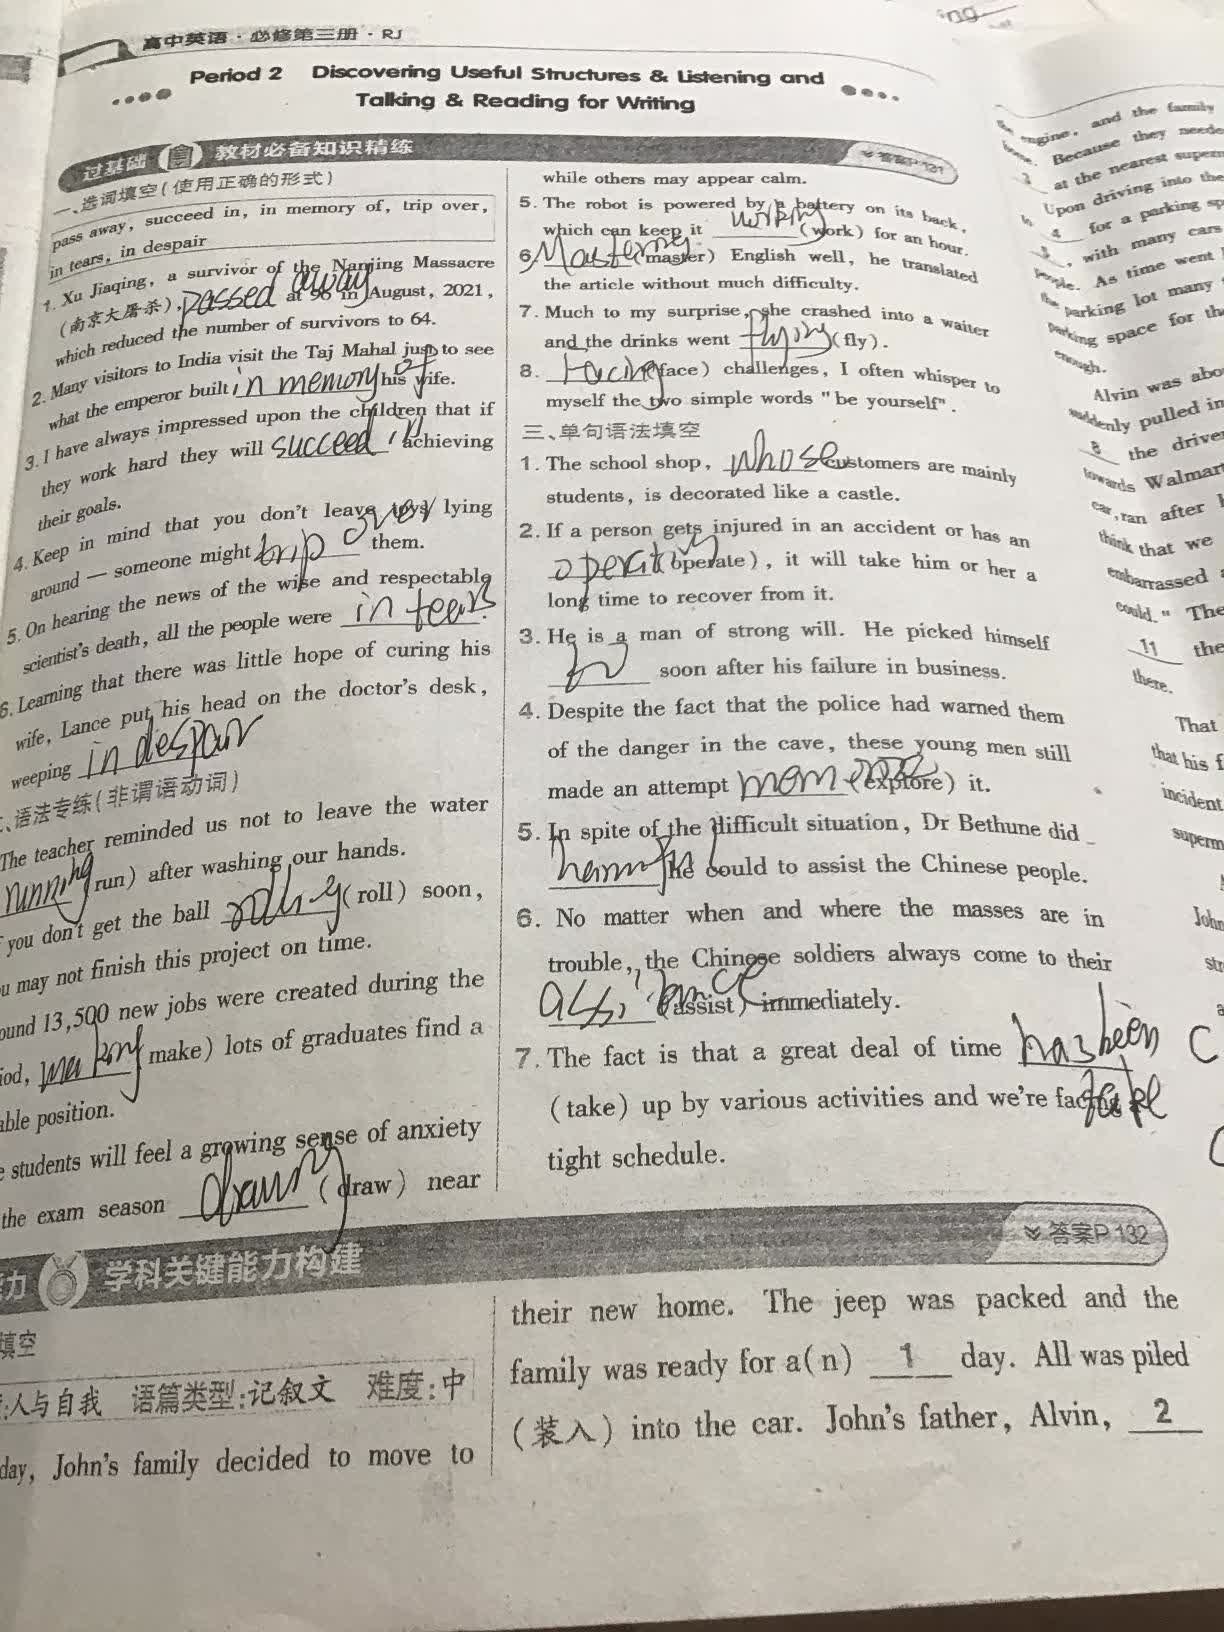 高中英语·必修第三册·RJ
Period 2 Discovering Useful Structures & Listening and
Talking & Reading for Writing
过基础 教材必备知识精练 答案P 131
一、选词填空(使用正确的形式)
pass away, succeed in, in memory of, trip over,
in tears, in despair
1. Xu Jiaqing, a survivor of the Nanjing Massacre
(南京大屠杀), passed away at 96 in August, 2021,
which reduced the number of survivors to 64.
2. Many visitors to India visit the Taj Mahal just to see
what the emperor built in memory of his wife.
3. I have always impressed upon the children that if
they work hard they will succeed in achieving
their goals.
4. Keep in mind that you don't leave toys lying
around — someone might trip over them.
5. On hearing the news of the wise and respectable
scientist's death, all the people were in tears.
6. Learning that there was little hope of curing his
wife, Lance put his head on the doctor's desk,
weeping in despair
、语法专练(非谓语动词)
The teacher reminded us not to leave the water
running (run) after washing our hands.
you don't get the ball rolling (roll) soon,
u may not finish this project on time.
ound 13,500 new jobs were created during the
iod, making make) lots of graduates find a
able position.
e students will feel a growing sense of anxiety
the exam season (draw) near
while others may appear calm.
5. The robot is powered by a battery on its back,
which can keep it working (work) for an hour.
6. Mastering (master) English well, he translated
the article without much difficulty.
7. Much to my surprise, she crashed into a waiter
and the drinks went flying (fly).
8. facing (face) challenges, I often whisper to
myself the two simple words "be yourself".
三、单句语法填空
1. The school shop, whose customers are mainly
students, is decorated like a castle.
2. If a person gets injured in an accident or has an
(operate), it will take him or her a
long time to recover from it.
3. He is a man of strong will. He picked himself
soon after his failure in business.
4. Despite the fact that the police had warned them
of the danger in the cave, these young men still
made an attempt (explore) it.
5. In spite of the difficult situation, Dr Bethune did
he could to assist the Chinese people.
6. No matter when and where the masses are in
trouble, the Chinese soldiers always come to their
(assist) immediately.
7. The fact is that a great deal of time has been
(take) up by various activities and we're facing a
tight schedule.
学科关键能力构建 答案P 132
填空
:人与自我 语篇类型:记叙文 难度:中
day, John's family decided to move to
their new home. The jeep was packed and the
family was ready for a(n) 1 day. All was piled
(装入) into the car. John's father, Alvin, 2
engine, and the family
home. Because they neede
3 at the nearest superm
Upon driving into the
to 4 for a parking sp
5, with many cars
people. As time went
the parking lot many
parking space for the
enough.
Alvin was abo
suddenly pulled in
8 the drive
towards Walmart
car, ran after h
think that we
embarrassed a
could." The
11 the
there.
That
that his f
incident
superm
John